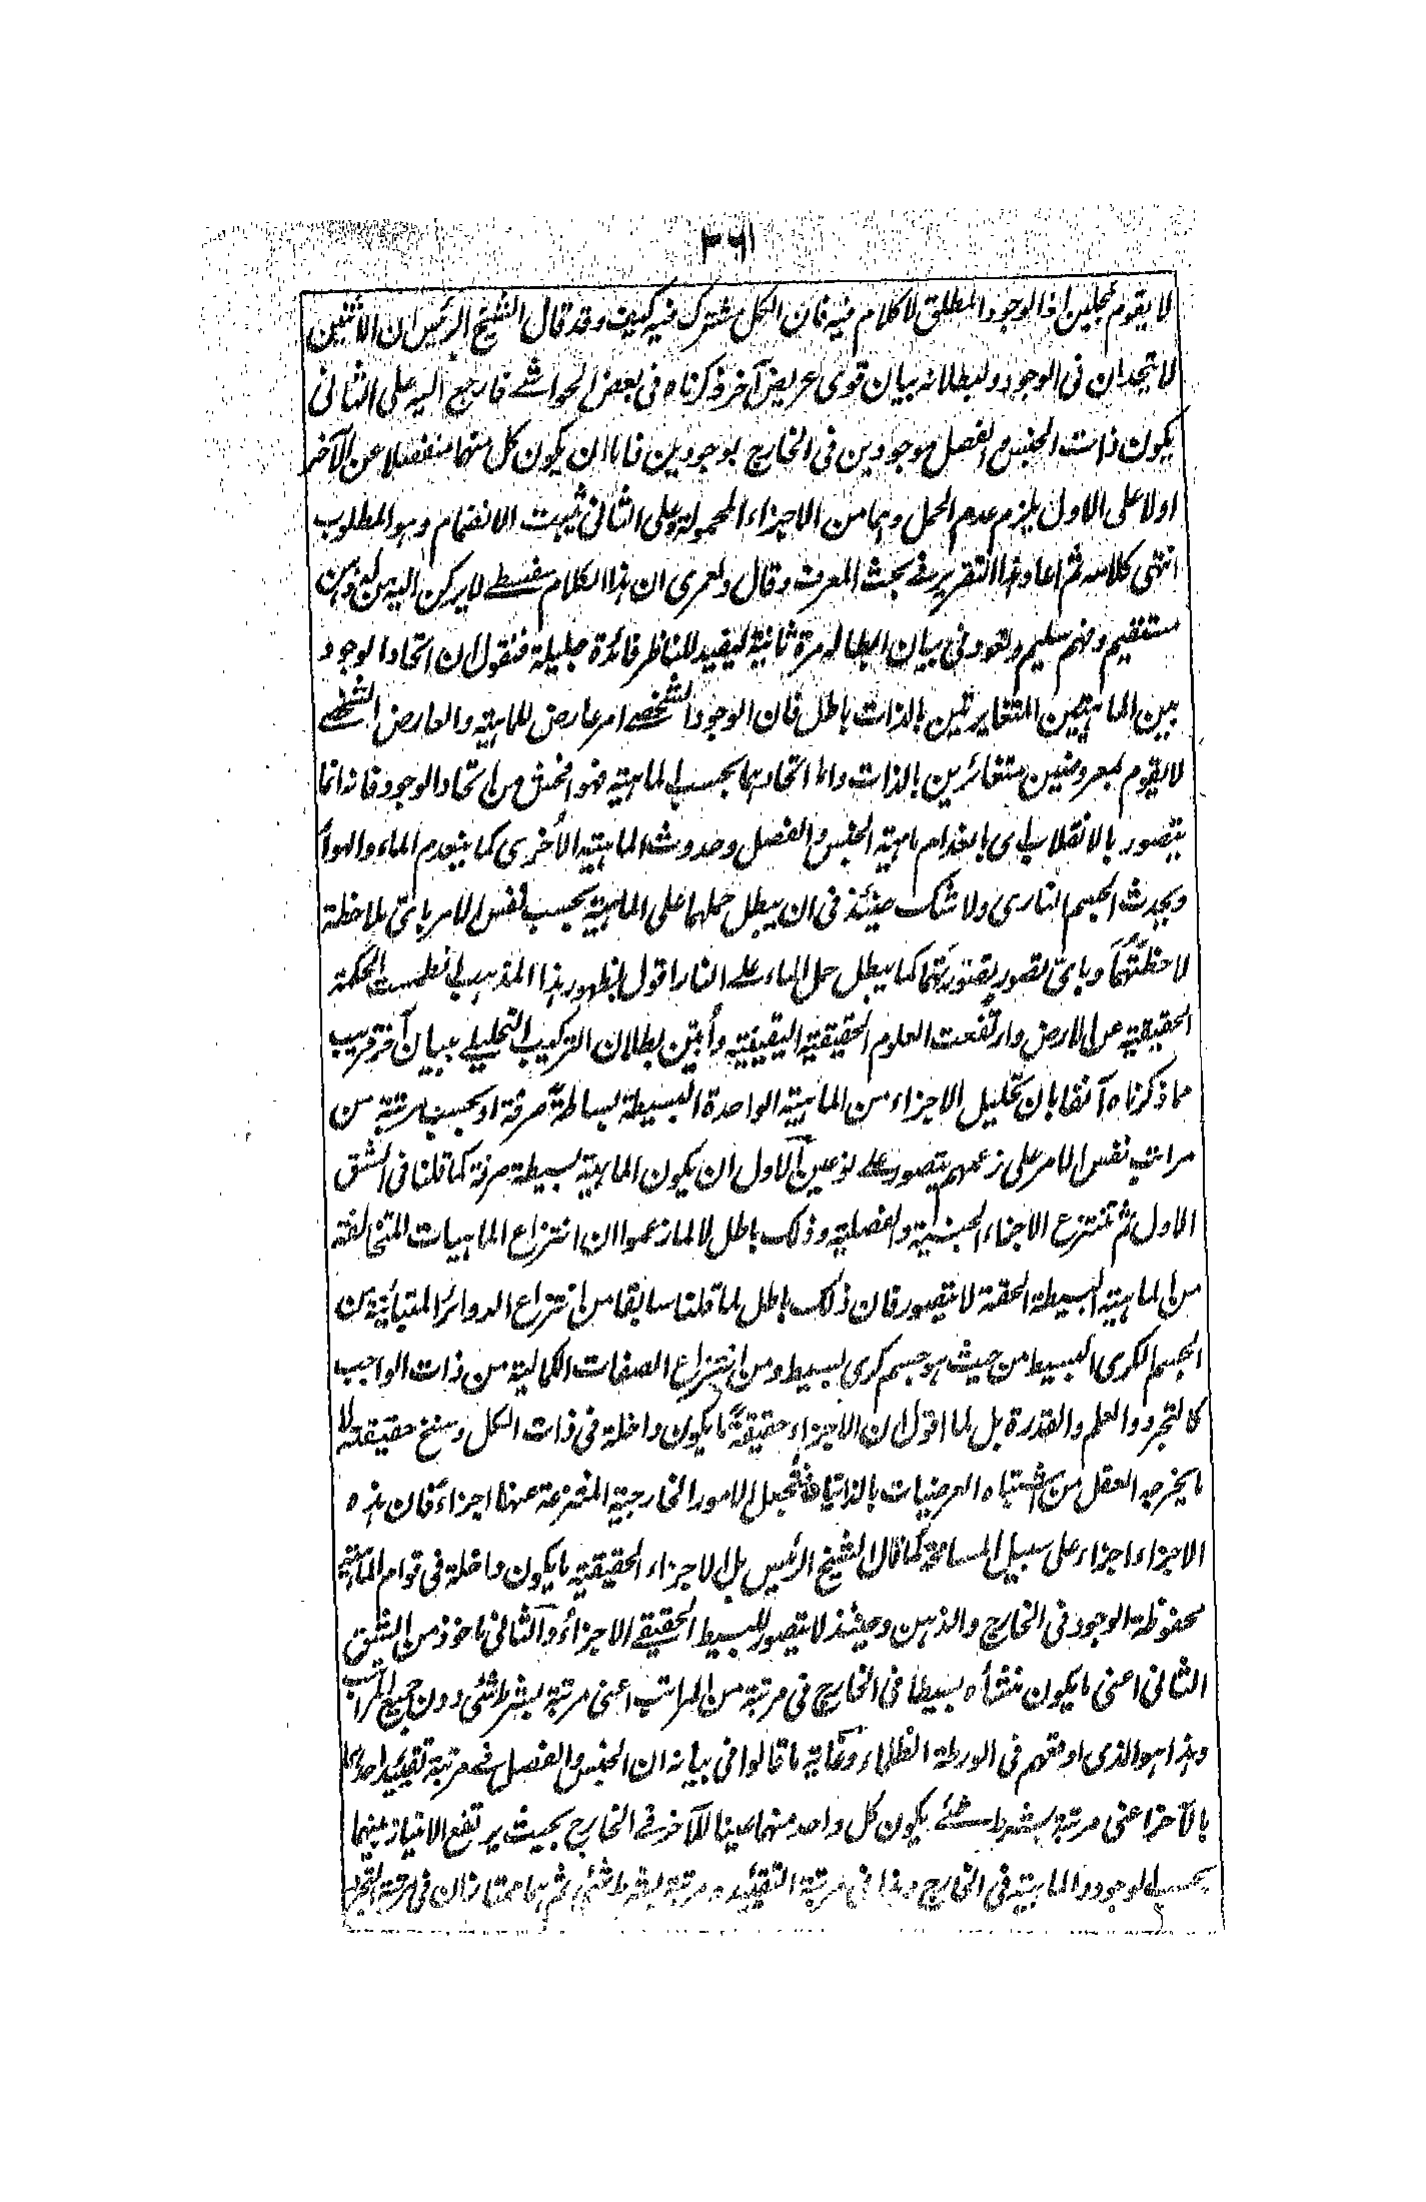 ٣٦١
لا يقوم بمحلين اذ الوجود المطلق لا كلام فيه فان الكل مشترك فيه كيف وقد قال الشيخ الرئيس ان الاثنين
لا يتحدان فى الوجود ولبطلانه بيان قوى عريض آخر ذكرناه فى بعض الحواشے فارجع اليه على الثانى
يكون ذات الجنس والفصل موجودين فى الخارج بوجودين فاما ان يكون كل منهما منفصلا عن الآخر
اولا على الاول يلزم عدم الحمل وهما من الاجزاء المحمولة وعلى الثانى ثبت الانضمام وهو المطلوب
انتهى كلامه ثم اعاد هذا التقرير فے بحث المعرف وقال ولعمرى ان هذا الكلام لا يركن اليه من له ذهن
مستقيم وفهم سليم ولنعود فى بيان ابطاله مرة ثانية ليفيد للناظر فائدة جليلة فنقول ان اتحاد الوجود
بين الماهيتين المتغايرتين بالذات باطل فان الوجود الشخصے امر عارض للماهية والعارض الشخصے
لا يقوم بمعروضين متغائرين بالذات واما اتحادهما بحسب الماهية فهو افحش من اتحاد الوجود فانه انما
يتصور بالانقلاب اى بانعدام ماهية الجنس والفصل وحدوث الماهية الأخرى كما ينعدم الماء والهواء
ويحدث الجسم النارى ولا شك حينئذ فى ان يبطل حملهما على الماهية بحسب نفس الامر باىّ ملاحظة
لاحظتَهُمَا وباىّ تصور تصورتَهما كما يبطل حمل الماء علے النار اقول بظهور هذا المذهب انطمست الحكمة
الحقيقية عن الارض وارتفعت العلوم الحقيقية اليقينية وأبيّن بطلان التركيب التحليلے ببيان آخر قريب
مما ذكرناه آنفا بان تحليل الاجزاء من الماهية الواحدة البسيطة بساطةً صرفة او بحسب مرتبة من
مراتب نفس الامر على زعمهم يتصور علے نوعين الاول ان يكون الماهية بسيطة صرفة كما قلنا فى الشق
الاول ثم تنتزع الاجزاء الجنسية والفصلية وذلك باطل لا لما زعموا ان انتزاع الماهيات المتخالفة
من الماهية البسيطة الحقة لا يتصور فان ذلك باطل لما قلنا سابقا من انتزاع الدوائر المتباينة من
الجسم الكرى البسيط من حيث هو جسم كرى بسيط ومن انتزاع الصفات الكمالية من ذات الواجب
كالتجرد والعلم والقدرة بل لما اقول ان الاجزاء حقيقةً ما يكون داخلة فى ذات الكل وسنخ حقيقته لا
ما يخرجه العقل من اشتباه العرضيات بالذاتيات فتُجعل الامور الخارجية المنتزعة عنها اجزاءً فان هذه
الاجزاء اجزاء على سبيل المسامحة كما قال الشيخ الرئيس بل الاجزاء الحقيقية ما يكون داخلة فى قوام الماهية
محفوظة الوجود فى الخارج والذهن وحينئذ لا يتصور للبسيط الحقيقے الاجزاءُ والثانى ماخوذ من الشق
الثانى اعنى ما يكون منشأه بسيطا فى الخارج فى مرتبة من المراتب اعنى مرتبة بشرط شئ دون جميع المراتب
وهذا هو الذى اوقعهم فى الورطة الظلماء وغاية ما قالوا فى بيانه ان الجنس والفصل فے مرتبة تقييد احدهما
بالآخر اعنى مرتبة بشرط شئے يكون كل واحد منهما عينا للآخر فے الخارج بحيث يرتفع الامتياز بينهما
بحسب الوجود والماهية فى الخارج وهذا فى مرتبة التقييد ومرتبة بشرط شئ ثم هما ممتازان فى مرتبة